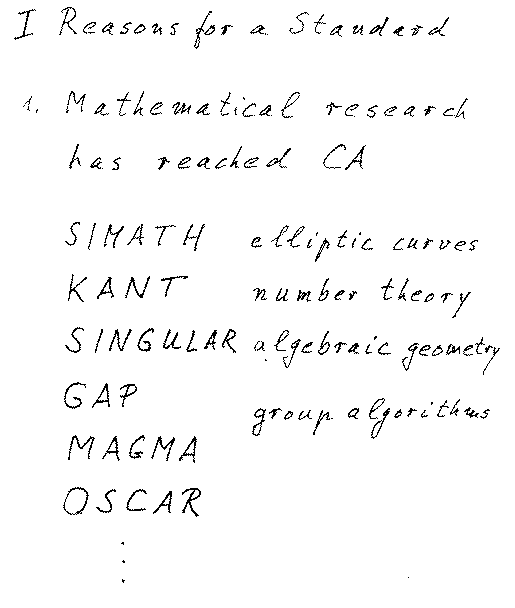 I Reasons for a Standard
1. Mathematical research
has reached CA
SIMATH elliptic curves
KANT number theory
SINGULAR algebraic geometry
GAP group algorithms
MAGMA
OSCAR
⋮